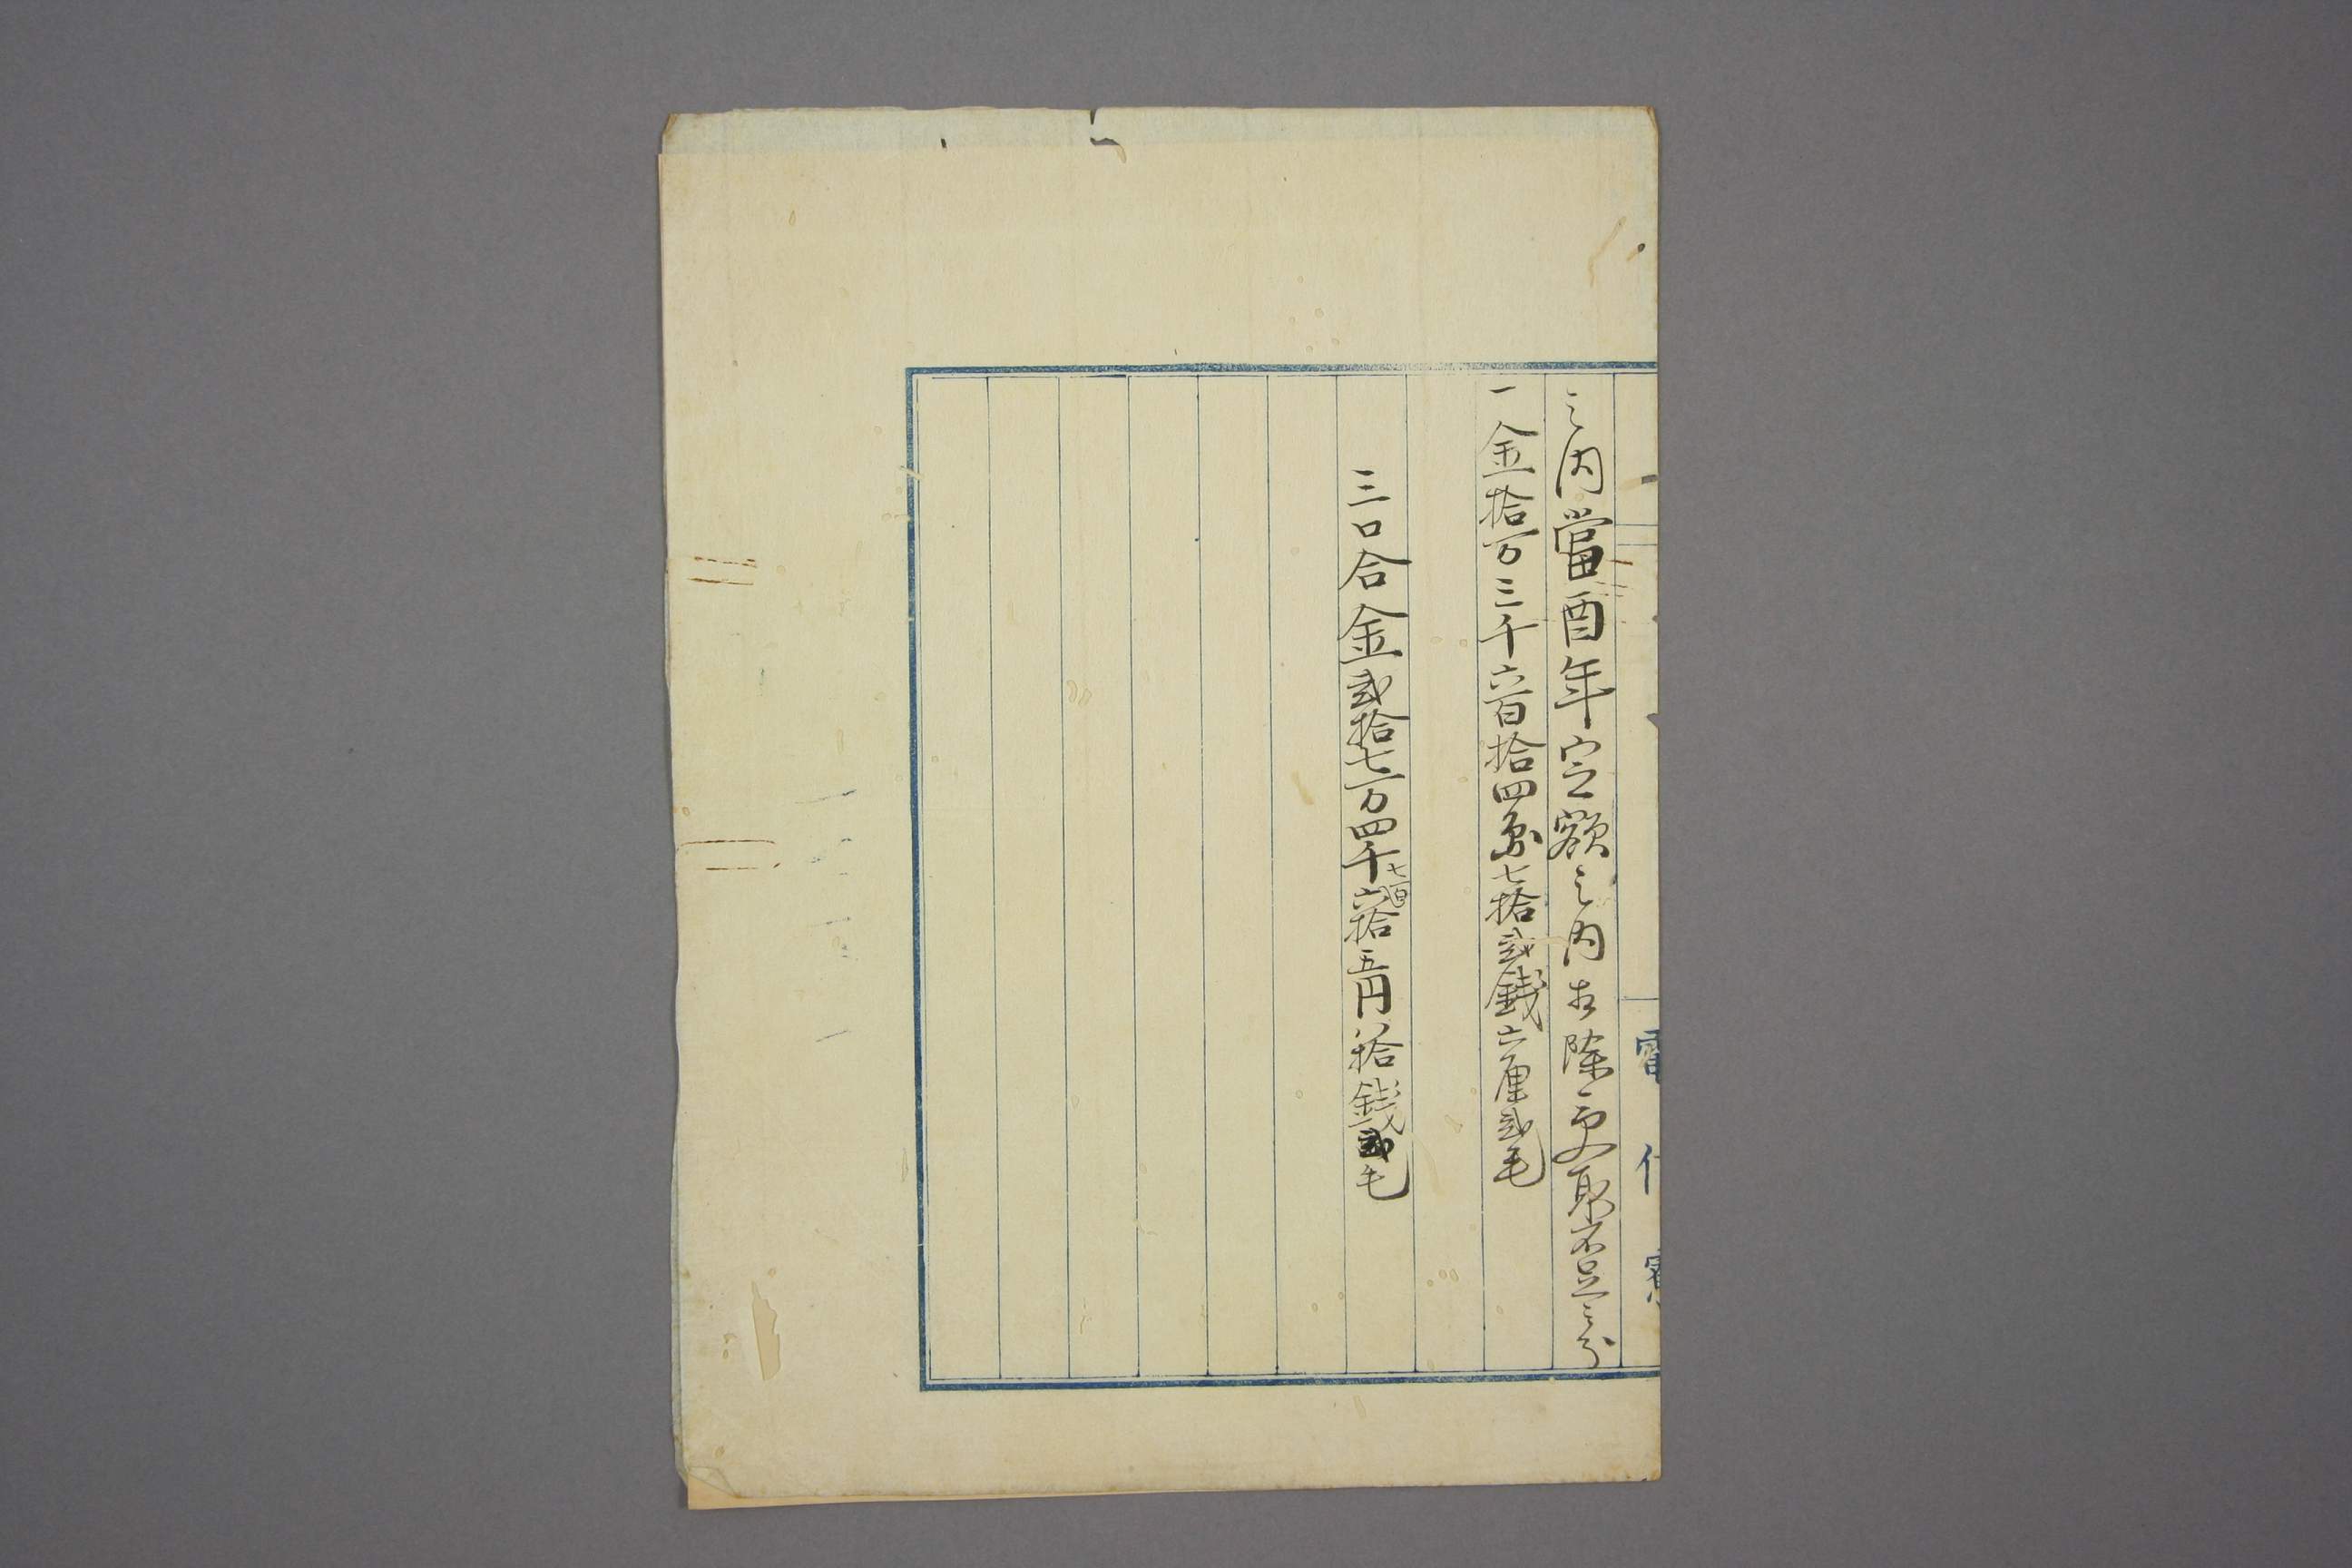 電信寮
之内當酉年定額之内相除更取不足之分
一金拾万三千六百拾四圓七拾弐銭六厘弐毛
三口合金弐拾七万四千七百六拾五円八拾銭弐毛